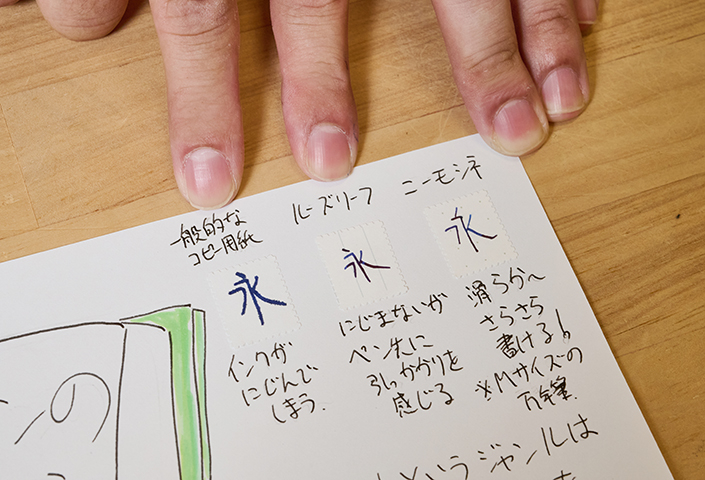 一般的な
コピー用紙
永
インクが
にじんで
しまう.
ルーズリーフ
永
にじまないが
ペン先に
引っかかりを
感じる
ニーモシネ
永
滑らか〜
さらさら
書ける♭
※Mサイズの
万年筆
の
というジャンルは